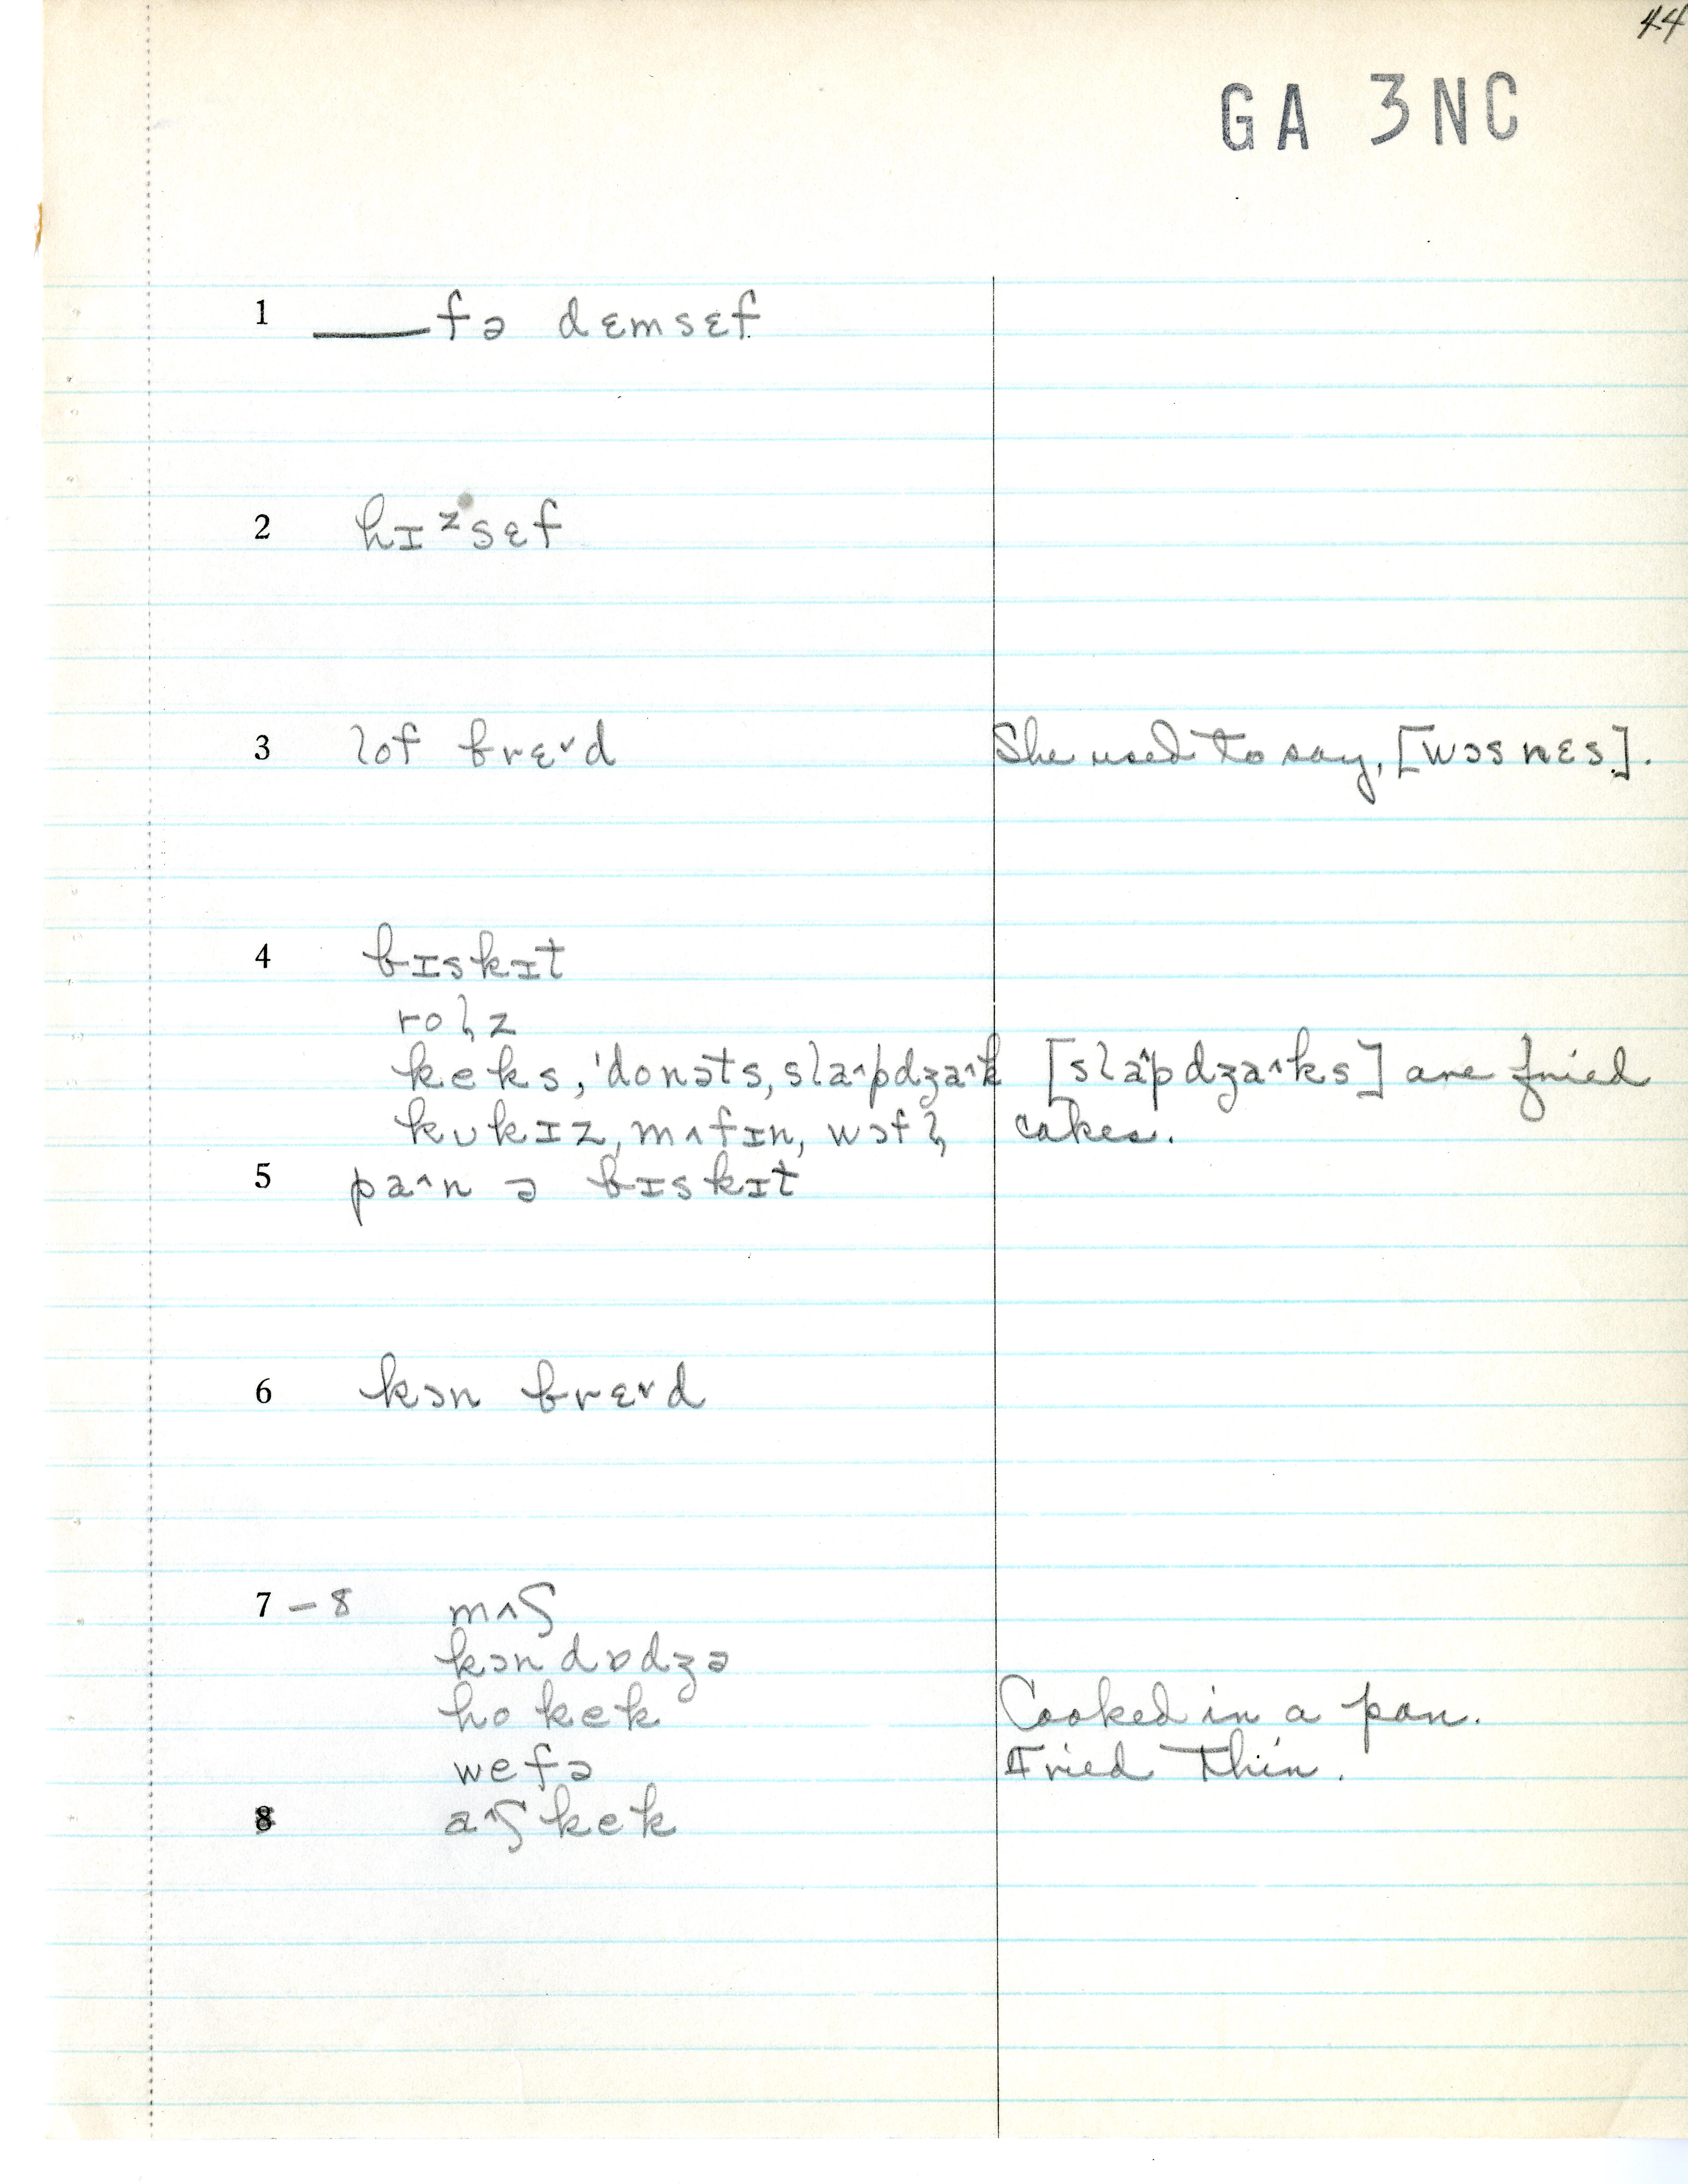 44
GA 3NC
1 ___ fə dɛmsɛf
2 hɪᶻsɛf
3 lof brɛ˅d She used to say, [wɔsnɛs].
4 bɪskɪt
rol̩z
keks, 'donəts, sla^pdʒa^k [sla^pdʒa^ks] are fried
kukɪz, mʌfɪn, wɔfl̩ cakes.
5 pa^n ə bɪskɪt
6 kɔn brɛ˅d
7 – 8 mʌʃ
kɔn dɒdʒə
ho kek Cooked in a pan.
wefə Fried thin.
8 a^ʃ kek